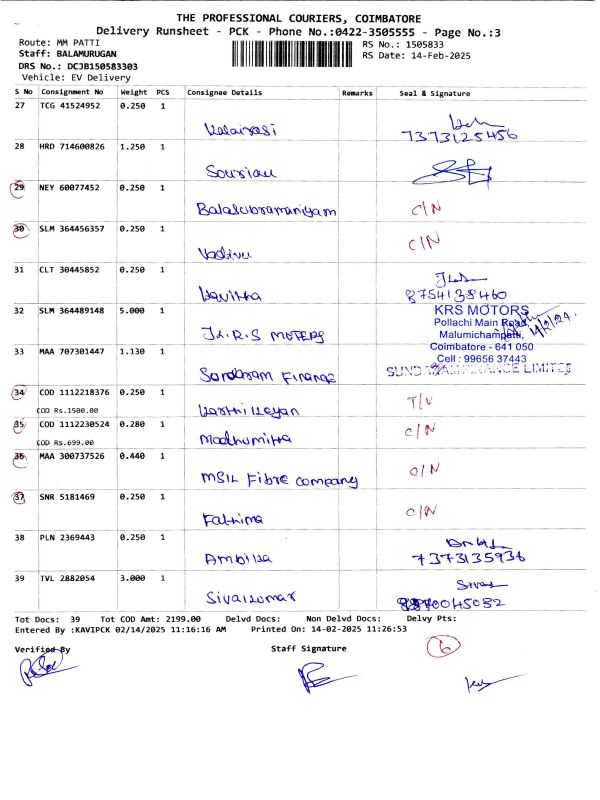 THE PROFESSIONAL COURIERS, COIMBATORE
Delivery Runsheet - PCK - Phone No.:0422-3505555 - Page No.:3
Route: MM PATTI RS No.: 1505833
Staff: BALAMURUGAN RS Date: 14-Feb-2025
DRS No.: DCJB150583303
Vehicle: EV Delivery
S No Consignment No Weight PCS Consignee Details Remarks Seal & Signature
27 TCG 41524952 0.250 1
Kalaivasi
7373125456
28 HRD 714600826 1.250 1
29 NEY 60077452 0.250 1
Balasubramaniyam C/N
30 SLM 364456357 0.250 1 C/N
Vadivu
31 CLT 30445852 0.250 1
Kavitha 8754138460
32 SLM 364489148 5.000 1 KRS MOTORS
Pollachi Main Road,
J.K.R.S MOTERS Malumichampatti,
33 MAA 707301447 1.130 1 Coimbatore - 641 050
Cell : 99656 37443
Sundaram Finance SUNDARAM FINANCE LIMITED
34 COD 1112218376 0.250 1 T/V
COD Rs.1500.00 Karthikeyan
35 COD 1112230524 0.280 1 C/N
COD Rs.699.00 Madhumitha
36 MAA 300737526 0.440 1 C/N
MSIL Fibre company
37 SNR 5181469 0.250 1 C/N
Fathima
38 PLN 2369443 0.250 1
Ambika 7373135936
39 TVL 2882054 3.000 1
Sivakumar
Tot Docs: 39 Tot COD Amt: 2199.00 Delvd Docs: Non Delvd Docs: Delvy Pts:
Entered By :KAVIPCK 02/14/2025 11:16:16 AM Printed On: 14-02-2025 11:26:53
6
Verified By Staff Signature